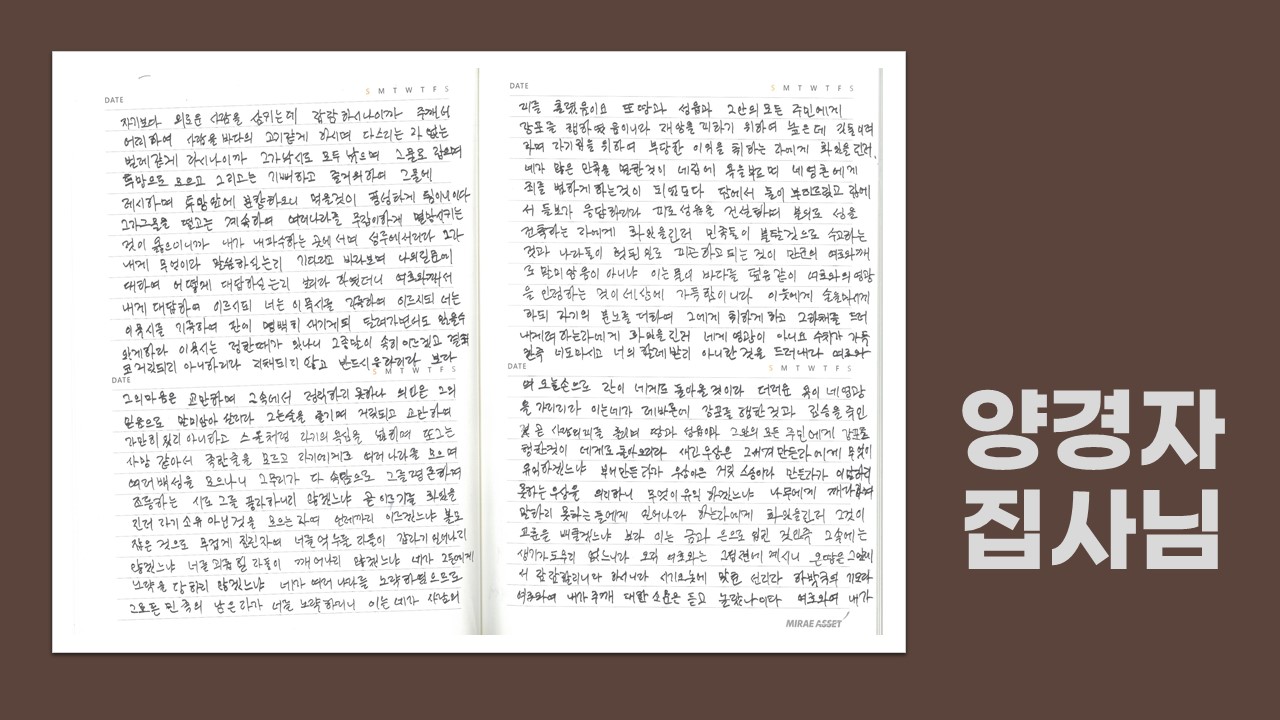 DATE
S M T W T F S
자기보다 의로운 사람을 삼키는데 잠잠하시나이까 주께서
어찌하여 사람을 바다의 고기같게 하시며 다스리는 자 없는
벌레같게 하시나이까 그가 낚시로 모두 낚으며 그물로 잡으며
투망으로 모으고 그리고는 기뻐하고 즐거워하여 그물에
제사하며 투망앞에 분향하오니 먹을것이 풍성하게 됨이니이다
그가 그물을 떨고는 계속하여 여러나라를 무자비하게 멸망시키는
것이 옳으이니까 내가 내 파수하는 곳에 서며 성루에서리라 그가
내게 무엇이라 말씀하실는지 기다리고 바라보며 나의질문에
대하여 어떻게 대답하실는지 보리라 하였더니 여호와께서
내게 대답하여 이르시되 너는 이 묵시를 기록하여
이 묵시를 기록하여 판에 명백히 새기되 달려가면서도 읽을수
있게하라 이 묵시는 정한때가 있나니 그 종말이 속히 이르겠고 결코
거짓되지 아니하리라 지체되지 않고 반드시 응하리라 보라
DATE
S M T W T F S
그의 마음은 교만하며 그 속에서 정직하지 못하나 의인은 그의
믿음으로 말미암아 살리라 그는 술을 즐기며 거짓되고 교만하여
가만히 있지 아니하고 스올처럼 자기의 욕심을 넓히며 또 그는
사망 같아서 족한줄을 모르고 자기에게로 여러 나라를 모으며
여러 백성을 모으나니 그 무리가 다 속담으로 그를 평론하며
조롱하는 시로 그를 풍자하지 않겠느냐 곧 이르기를 화있을
진저 자기 소유 아닌것을 모으는 자여 언제까지 이르겠느냐 볼모
잡은 것으로 무겁게 짐진자여 너를 억누를 자들이 갑자기 일어나지
않겠느냐 너를 괴롭힐 자들이 깨어나지 않겠느냐 네가 그들에게
노략을 당하지 않겠느냐 네가 여러 나라를 노략하였으므로
그 모든 민족의 남은 자가 너를 노략하리니 이는 네가 사람의
DATE
S M T W T F S
피를 흘렸음이요 또 땅과 성읍과 그안의 모든 주민에게
강포를 행하였음이니라 재앙을 피하기 위하여 높은데 깃들이려
하며 자기 집을 위하여 부당한 이익을 취하는 자에게 화 있을진저
네가 많은 민족을 멸한것이 네 집에 욕을 부르며 네 영혼에게
죄를 범하게 하는것이 되었도다 담에서 돌이 부르짖고 집에
서 들보가 응답하리라 피로 성읍을 건설하며 불의로 성을
건축하는 자에게 화 있을진저 민족들이 불탈것으로 수고하는
것과 나라들이 헛된 일로 피곤하게 되는 것이 만군의 여호와께
로 말미암음이 아니냐 이는 물이 바다를 덮음같이 여호와의 영광
을 인정하는 것이 세상에 가득함이니라 이웃에게 술을 마시게
하되 자기의 분노를 더하여 그에게 취하게 하고 그 하체를 드러
내게 하는 자에게 화 있을진저 네게 영광이 아니요 수치가 가득
한즉 너도 마시고 너의 할례받지 아니한 것을 드러내라 여호와
DATE
S M T W T F S
의 오늘손으로 잔이 네게로 돌아올 것이라 더러운 욕이 네 영광
을 가리리라 이는 네가 레바논에 강포를 행한것과 짐승을 죽인
것 곧 사람의 피를 흘리며 땅과 성읍과 그 안의 모든 주민에게 강포를
행한것이 네게로 돌아오리라 새긴 우상은 그 새겨 만든 자에게 무엇이
유익하겠느냐 부어 만든 자가 우상은 거짓 스승이라 만든 자가 이 말하지
못하는 우상을 의지하니 무엇이 유익하겠느냐 나무에게 깨라하며
말하지 못하는 돌에게 일어나라 하는 자에게 화 있을진저 그것이
교훈을 베풀겠느냐 보라 이는 금과 은으로 입힌 것인즉 그 속에는
생기가 도무지 없느니라 오직 여호와는 그 성전에 계시니 온 땅은 그앞에
서 잠잠할지니라 하시니라 시기오놋에 맞춘 선지자 하박국의 기도라
여호와여 내가 주께 대한 소문을 듣고 놀랐나이다 여호와여 내가
MIRAE ASSET
양경자
집사님